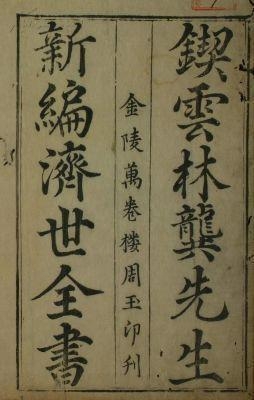 鍥雲林龔先生
金陵萬卷樓周玉印刋
新編濟世全書